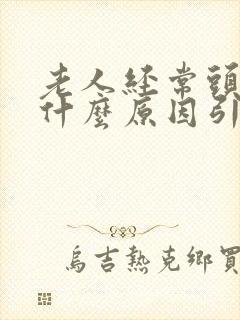 老人經常頭
什麼原因引
烏吉熱克鄉買